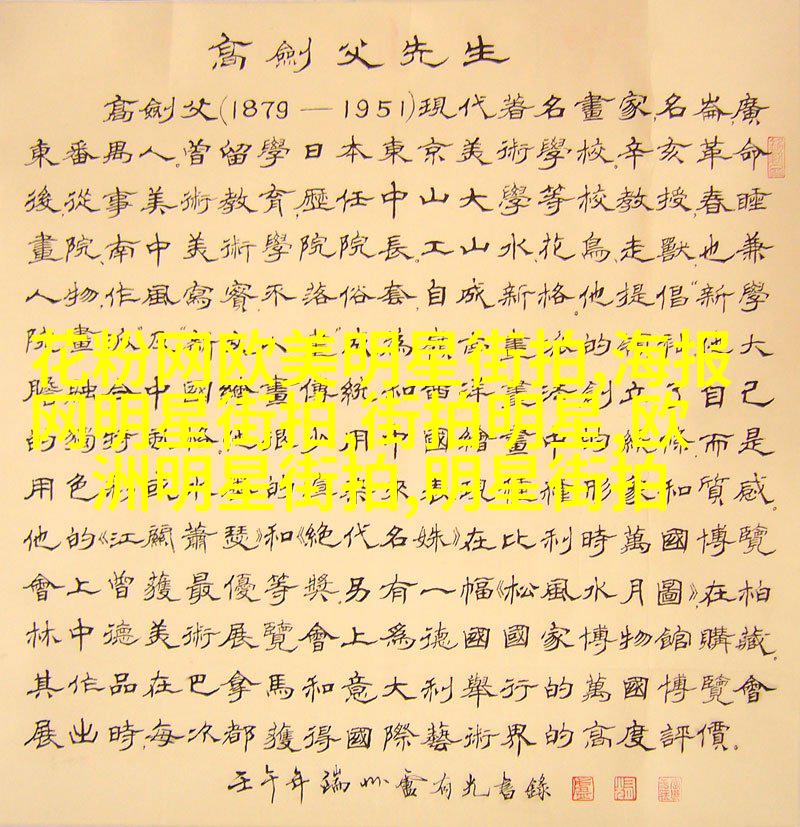 高劍父先生
高劍父(1879—1951)現代著名畫家,名崙,廣
東番禺人。曾留學日本東京美術學校。辛亥革命
後,從事美術教育,歷任中山大學等校教授,春睡
畫院,南中美術學院院長。工山水,花鳥,走獸,也兼
人物,作風寫實,不落俗套,自成新格。他提倡“新學
院畫 的 他大
花粉网欧美明星街拍,海报
膽融合中國繪畫傳統和西洋畫法,創立了自己
网明星街拍,街拍明星 欧
的獨特 他很少用中國繪畫中的線條,而是
洲明星街拍,明星街拍
用色 的 來表現 種形象和質感。
他的《江關蕭瑟》和《絕代名姝》在比利時萬國博覽
會上曾獲最優等獎。另有一幅《松風水月圖》,在柏
林中德美術展覽會上為德國國家博物館購藏。
其作品在巴拿馬和意大利舉行的萬國博覽會
展出時,每次都獲得國際藝術界的高度評價。
壬午年端州盧有光書錄